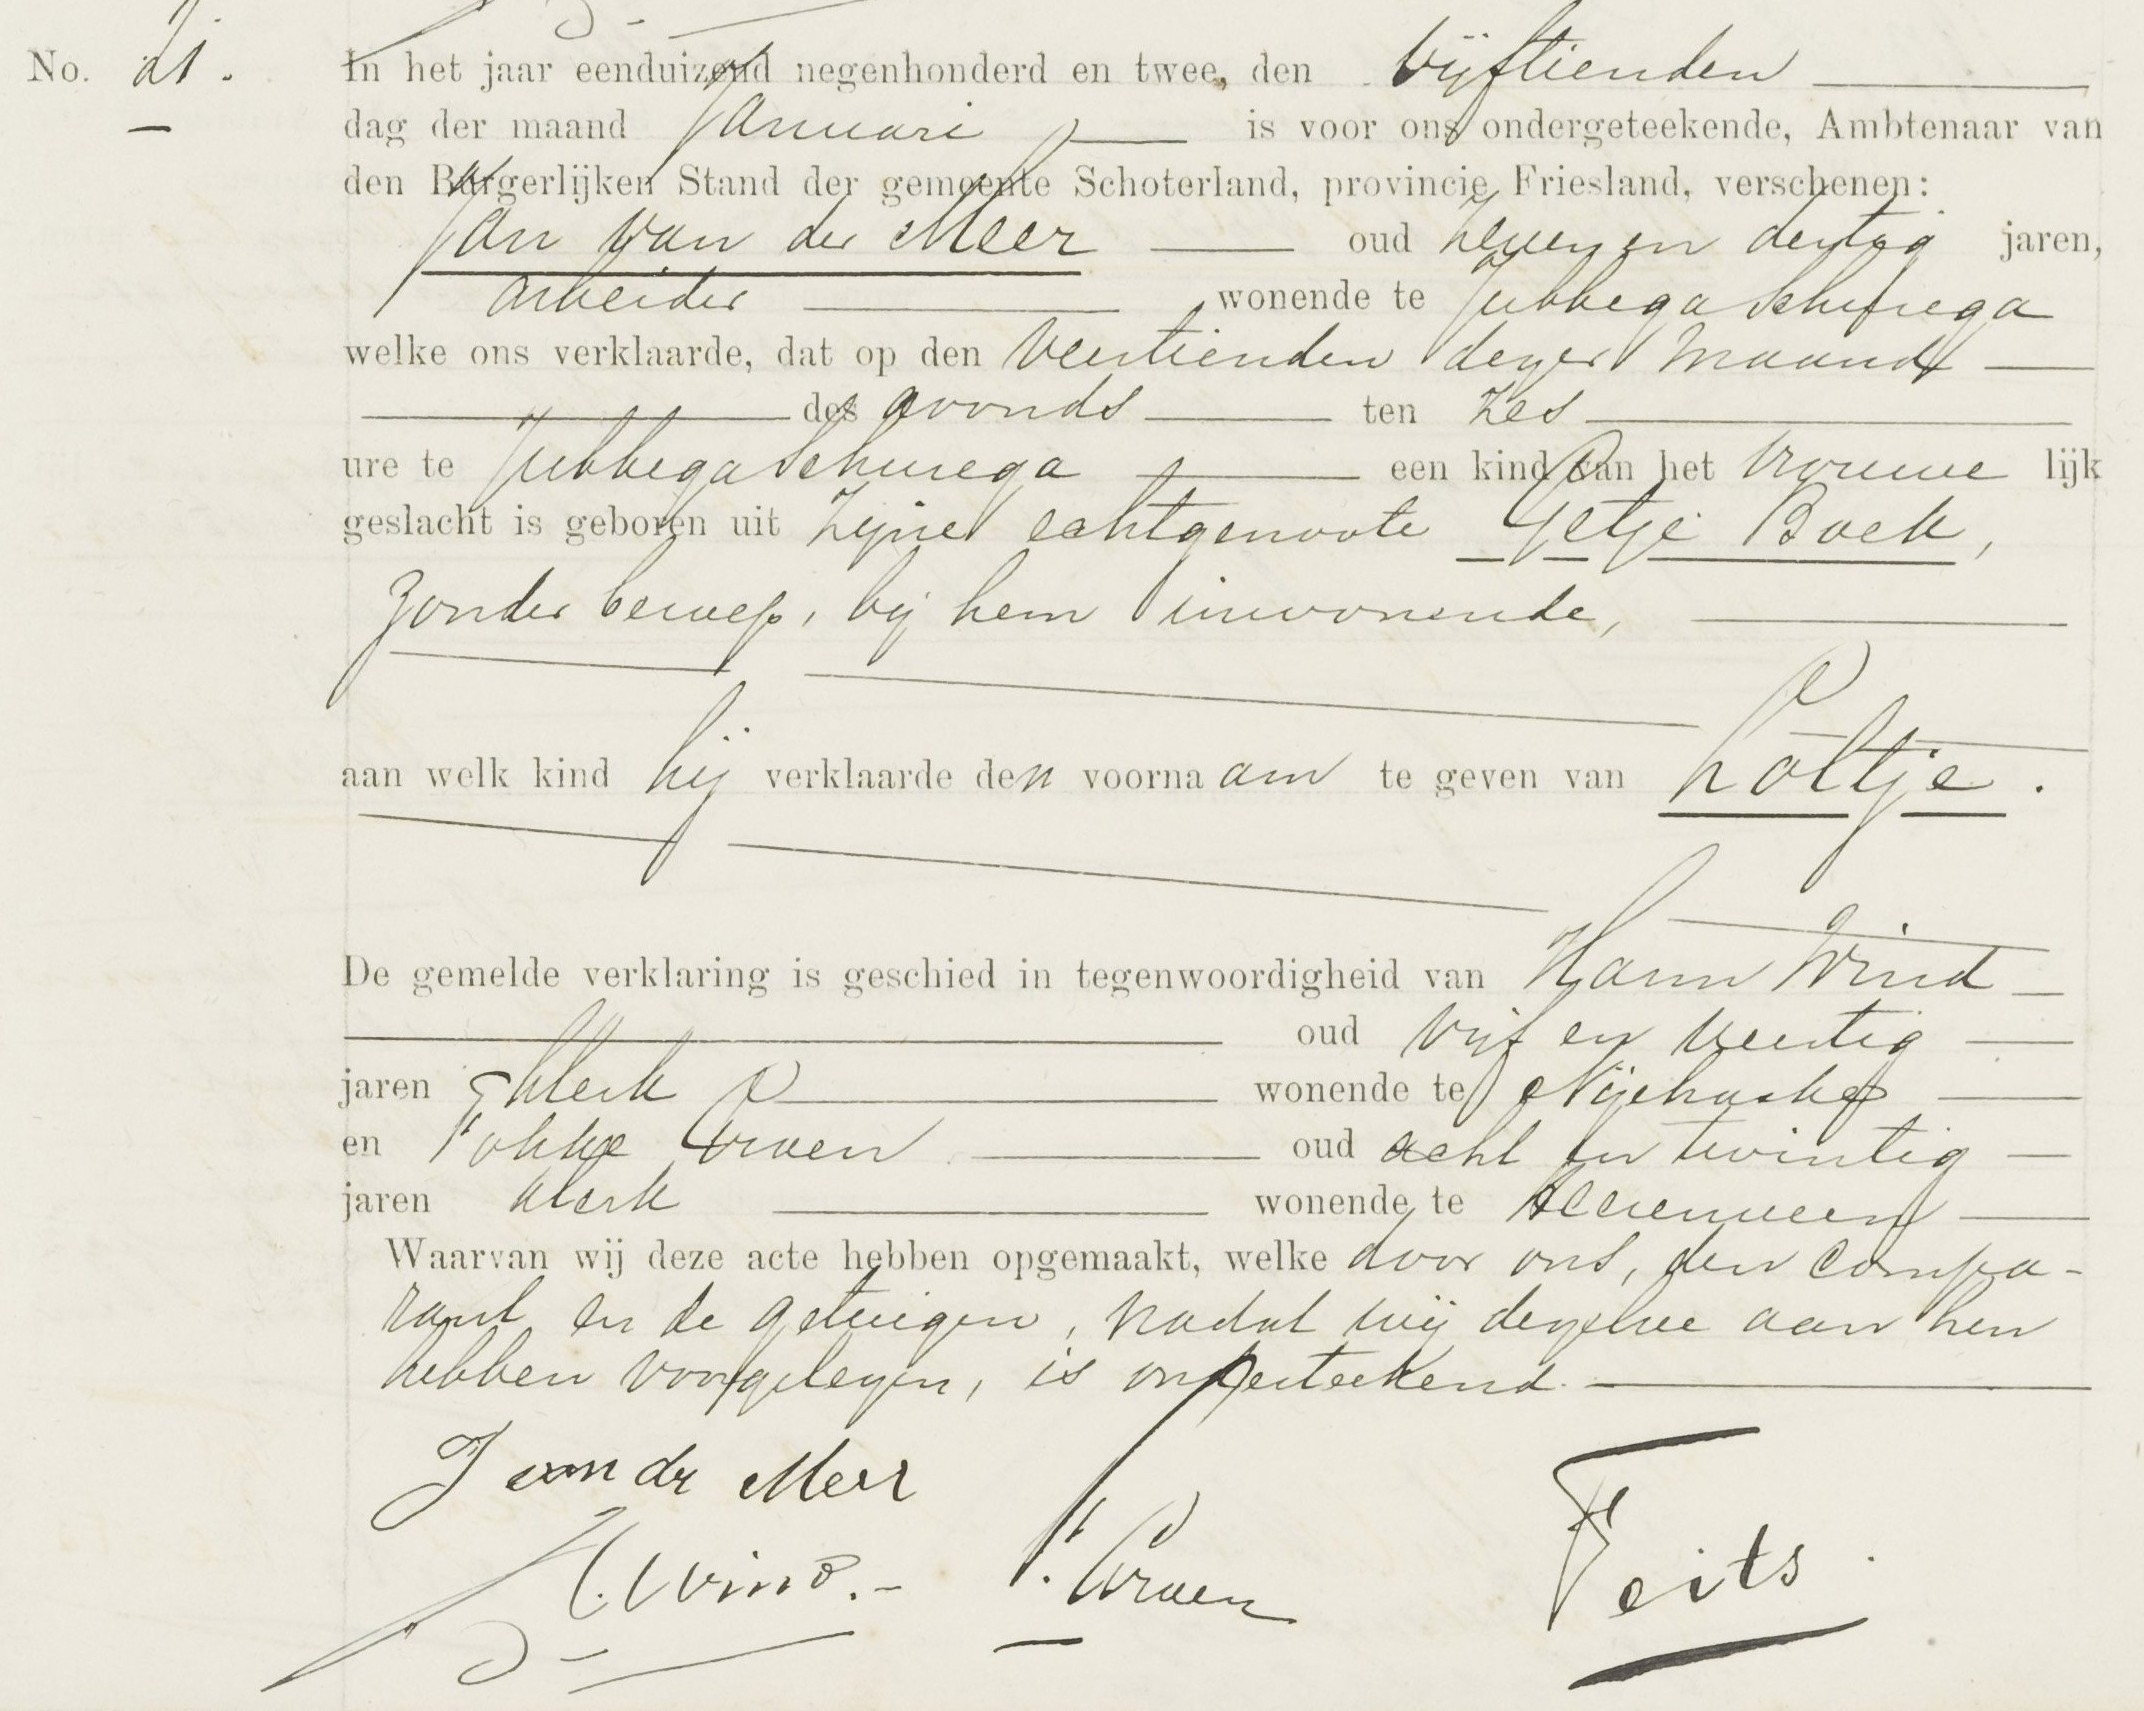 No. 21. In het jaar eenduizend negenhonderd en twee, den vijftienden
dag der maand Januari is voor ons ondergeteekende, Ambtenaar van
den Burgerlijken Stand der gemeente Schoterland, provincie Friesland, verschenen:
Jan van der Meer oud zeven en dertig jaren,
arbeider wonende te Jubbega Schurega
welke ons verklaarde, dat op den veertienden dezer maand
des avonds ten zes
ure te Jubbega Schurega een kind van het vrouwe lijk
geslacht is geboren uit zijne echtgenoote Getje Boek,
zonder beroep, bij hem inwonende,
aan welk kind hij verklaarde den voorna am te geven van Roeltje.
De gemelde verklaring is geschied in tegenwoordigheid van Harm Wind
oud vijf en veertig
jaren klerk wonende te Nijehaske
en Fokke Groen oud acht en twintig
jaren klerk wonende te Heerenveen
Waarvan wij deze acte hebben opgemaakt, welke door ons, den compa-
rant en de getuigen, nadat wij dezelve aan hen
hebben voorgelezen, is onderteekend.
J van der Meer
H. Wind.- F. Groen Feits